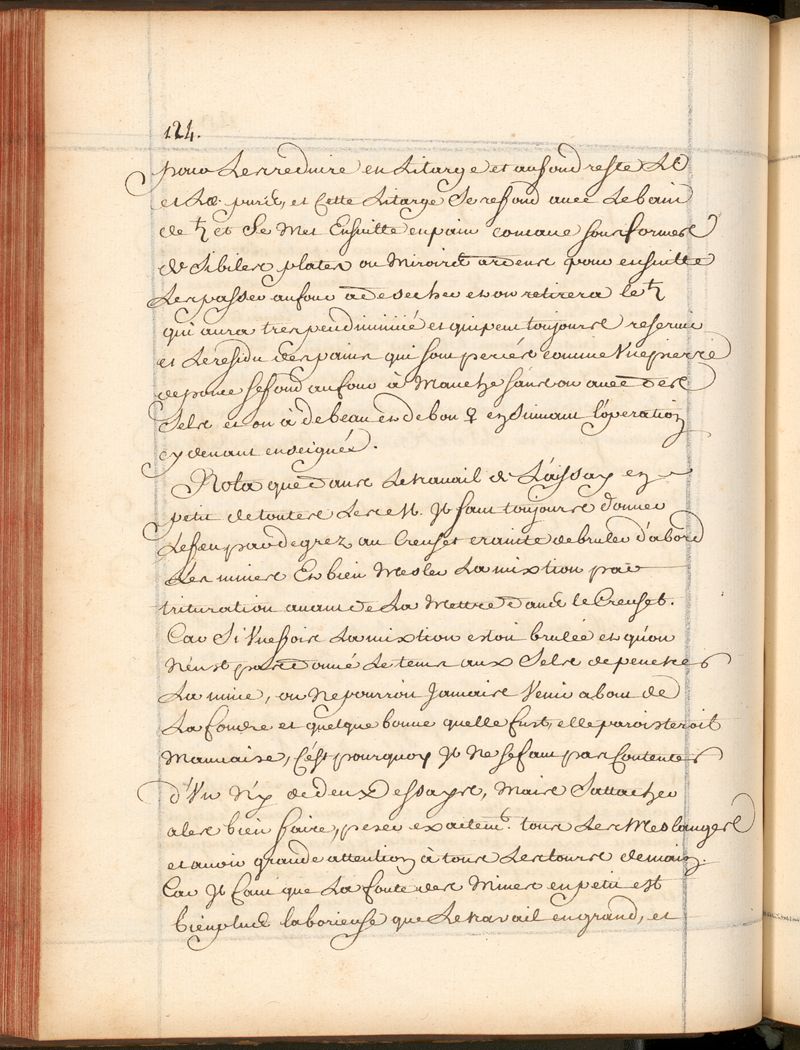 124.
pour Les reduire en Litarge et au fond reste
et La purée, et Cette Litarge Se refond avec Le bain
de ♄ et Se Met Ensuitte en pain comme sous forme
de Sibiles plates ou Miroirs ardens pour ensuitte
Les passer au four a desecher et on retirera le ♄
qui aura tres peu diminüé et qui peut toujours reservir
et Le residu des pains qui sont percés comme Une pierre
de ponce se fond au four à Manche sans ou avec des
Sels et on à de beau et de bon ♀ en Suivant l'operation
cy devant enseignée.
Nota que dans Le travail de L'aissay en
petit de toutes Les Jl faut toujours donner
Le feu par degrez au Creuset crainte de bruler d'abord
Les mines Et bien Mesler La mixtion par
trituration avant de La Mettre dans le Creuset.
Car Si Une fois La mixtion estoit brulée et qu'on
N'eust pas donné Le tems aux Sels de penetrer
La mine, on Ne pourroit Jamais Venir a bout de
La fondre et quelque bonne quelle fust, elle paroisteroit
Mauvaise, C'est pourquoy Jl Ne se faut pas Contenter
d'Un N'y de deux Essays, Mais S'attacher
a les bien faire, peser exactemt. tous Les Meslanges
et avoir grande attention à tous Les tours de main.
Car Jl faut que La fonte des Mines en petit est
bien plus laborieuse que Le travail en grand, et